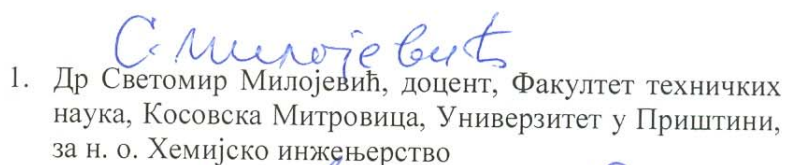 С. Милојевић
1. Др Светомир Милојевић, доцент, Факултет техничких
наука, Косовска Митровица, Универзитет у Приштини,
за н. о. Хемијско инжењерство